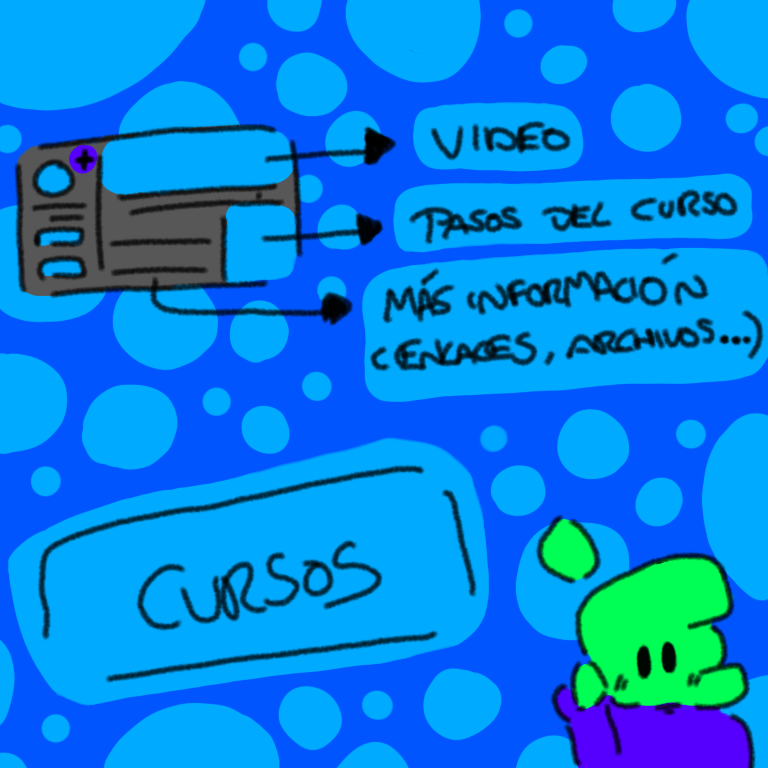 VIDEO
PASOS DEL CURSO
MÁS INFORMACIÓN
(ENLACES, ARCHIVOS...)
CURSOS